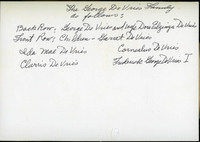 The George De Vries Family
as follows:
Back Row; George De Vries and wife Dora Elzinga De Vries
Front Row; Children - Garret De Vries
Ida Mae De Vries
Cornelius De Vries
Clarris De Vries
Frederick George De Vries I